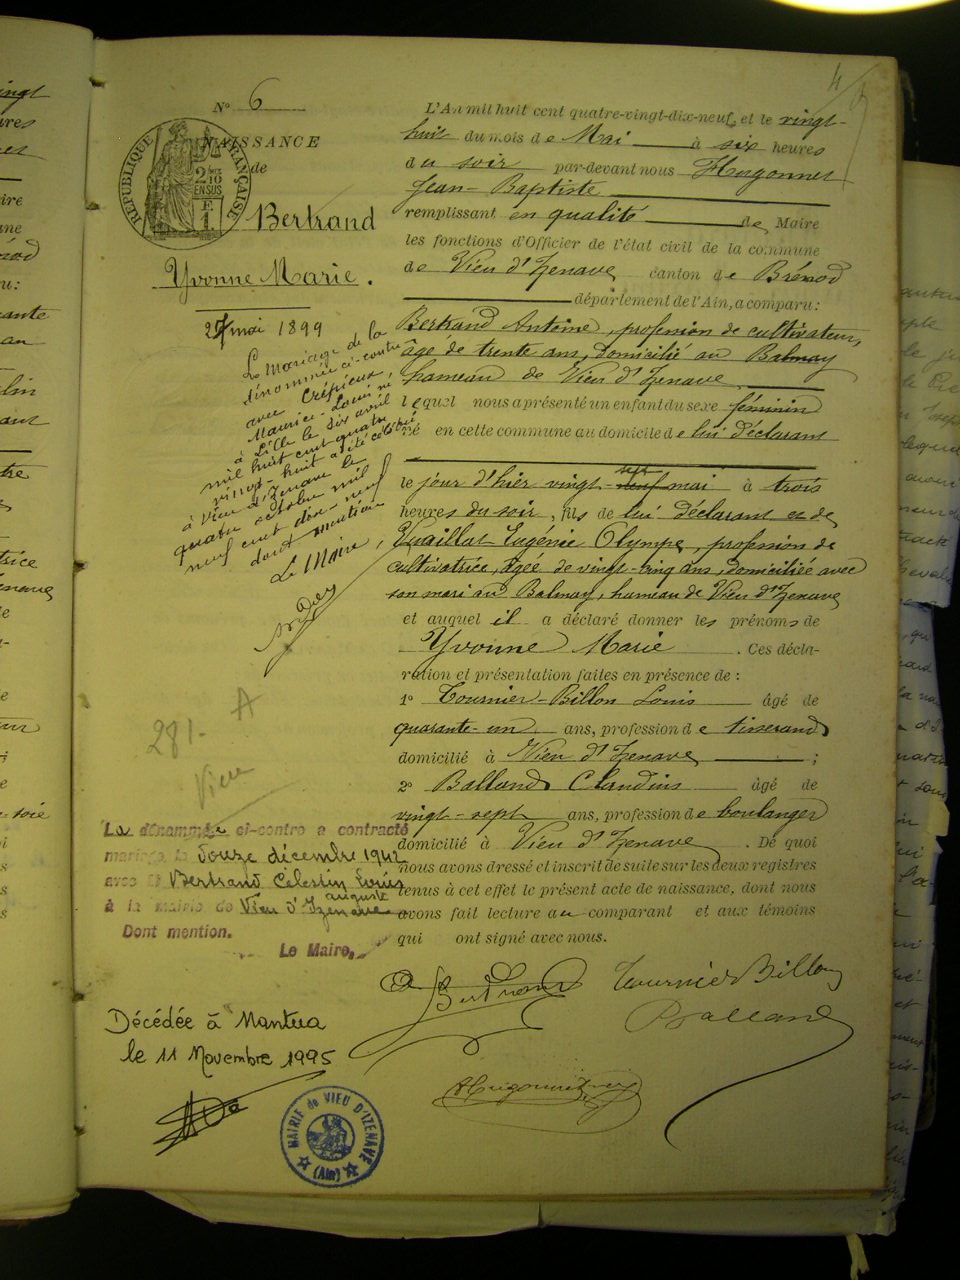 N° 6
NAISSANCE
de
RÉPUBLIQUE FRANÇAISE
2/10 EN SUS
Bertrand
Yvonne Marie.
27 mai 1899
Le mariage de la
dénommée ci-contre
avec Crépieux,
Maurice-Louis né
à Lille le six avril
mil huit cent quatre
vingt-huit a été célébré
à Vieu d'Izenave le
quatre octobre mil
neuf cent dix-neuf
dont mention
Le Maire,
281- A
Vieu
La dénommée ci-contre a contracté
mariage le douze décembre 1942
avec Bertrand Célestin Louis
auguste
à la mairie de Vieu d'Izenave
Dont mention.
Le Maire,
Décédée à Nantua
le 11 Novembre 1995
MAIRIE de VIEU D'IZENAVE
(Ain)
4
L'An mil huit cent quatre-vingt-dix-neuf, et le vingt-
huit du mois de Mai à six heures
du soir par-devant nous Hugonnet
Jean-Baptiste
remplissant en qualité de Maire
les fonctions d'Officier de l'état civil de la commune
de Vieu d'Izenave canton de Brénod
département de l'Ain, a comparu:
Bertrand Antoine, profession de cultivateur,
âgé de trente ans, domicilié au Balmay
hameau de Vieu d'Izenave
lequel nous a présenté un enfant du sexe féminin
né en cette commune au domicile de lui déclarant
le jour d'hier vingt-sept mai à trois
heures du soir, fils de lui déclarant et de
Vuaillat Eugénie Olympe, profession de
cultivatrice, âgée de vingt-cinq ans, domiciliée avec
son mari au Balmay, hameau de Vieu d'Izenave
et auquel il a déclaré donner les prénoms de
Yvonne Marie. Ces décla-
ration et présentation faites en présence de :
1° Tournier-Billon Louis âgé de
quarante-un ans, profession de tisserand
domicilié à Vieu d'Izenave ;
2° Balland Claudius âgé de
vingt-sept ans, profession de boulanger
domicilié à Vieu d'Izenave. De quoi
nous avons dressé et inscrit de suite sur les deux registres
tenus à cet effet le présent acte de naissance, dont nous
avons fait lecture au comparant et aux témoins
qui ont signé avec nous.
Bertrand Tournier Billon
Balland
Hugonnet